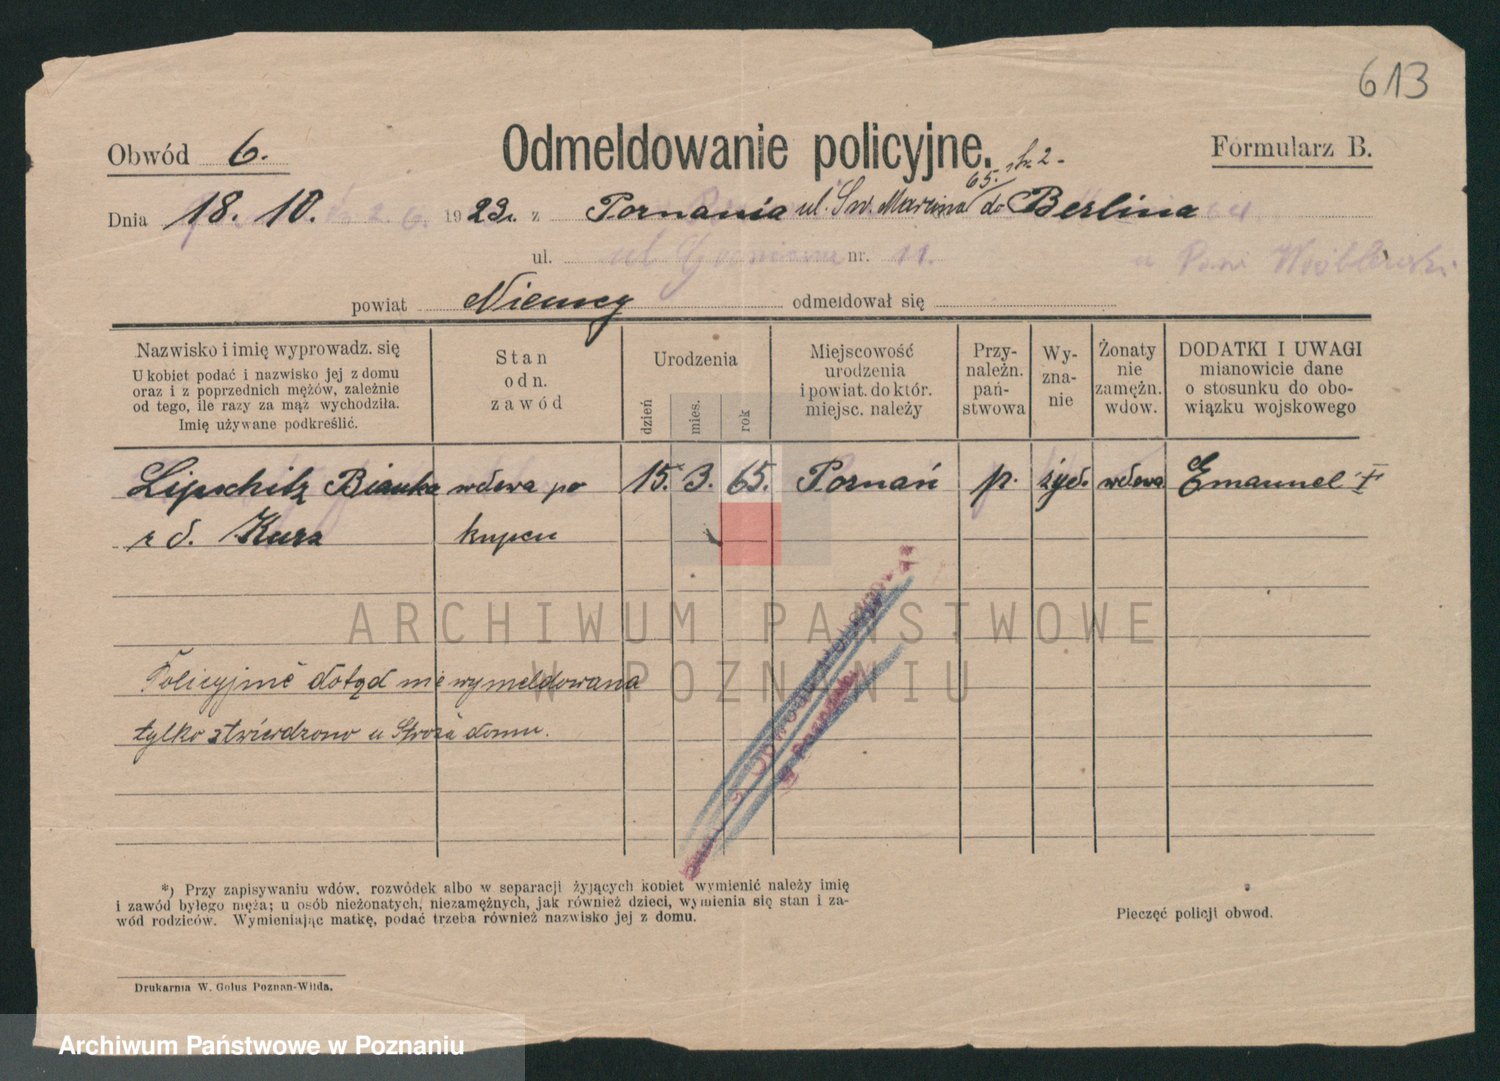 613
Obwód 6.
Odmeldowanie policyjne.
Formularz B.
65. 2
Dnia 18. 10. 1923r. z Poznania ul. Św. Marcina do Berlina
ul. nr. 11.
powiat Niemcy odmeldował się
Nazwisko i imię wyprowadz. się
U kobiet podać i nazwisko jej z domu
oraz i z poprzednich mężów, zależnie
od tego, ile razy za mąż wychodziła.
Imię używane podkreślić.
Stan
odn.
zawód
Urodzenia
dzień
mies.
rok
Miejscowość
urodzenia
i powiat. do któr.
miejsc. należy
Przy-
należn.
pań-
stwowa
Wy-
zna-
nie
Żonaty
nie
zamężn.
wdow.
DODATKI I UWAGI
mianowicie dane
o stosunku do obo-
wiązku wojskowego
Lipschitz Bianka wdowa po 15. 3. 65. Poznań p. żyd. wdowa Emanuel †
z d. Kurz kupcu
ARCHIWUM PAŃSTWOWE
W POZNANIU
Policyjnie dotąd nie wymeldowana
tylko stwierdzono u Stróża domu.
*) Przy zapisywaniu wdów, rozwódek albo w separacji żyjących kobiet wymienić należy imię
i zawód byłego męża; u osób nieżonatych, niezamężnych, jak również dzieci, wymienia się stan i za-
wód rodziców. Wymieniając matkę, podać trzeba również nazwisko jej z domu.
Pieczęć policji obwod.
Drukarnia W. Golus Poznan-Wilda.
Archiwum Państwowe w Poznaniu